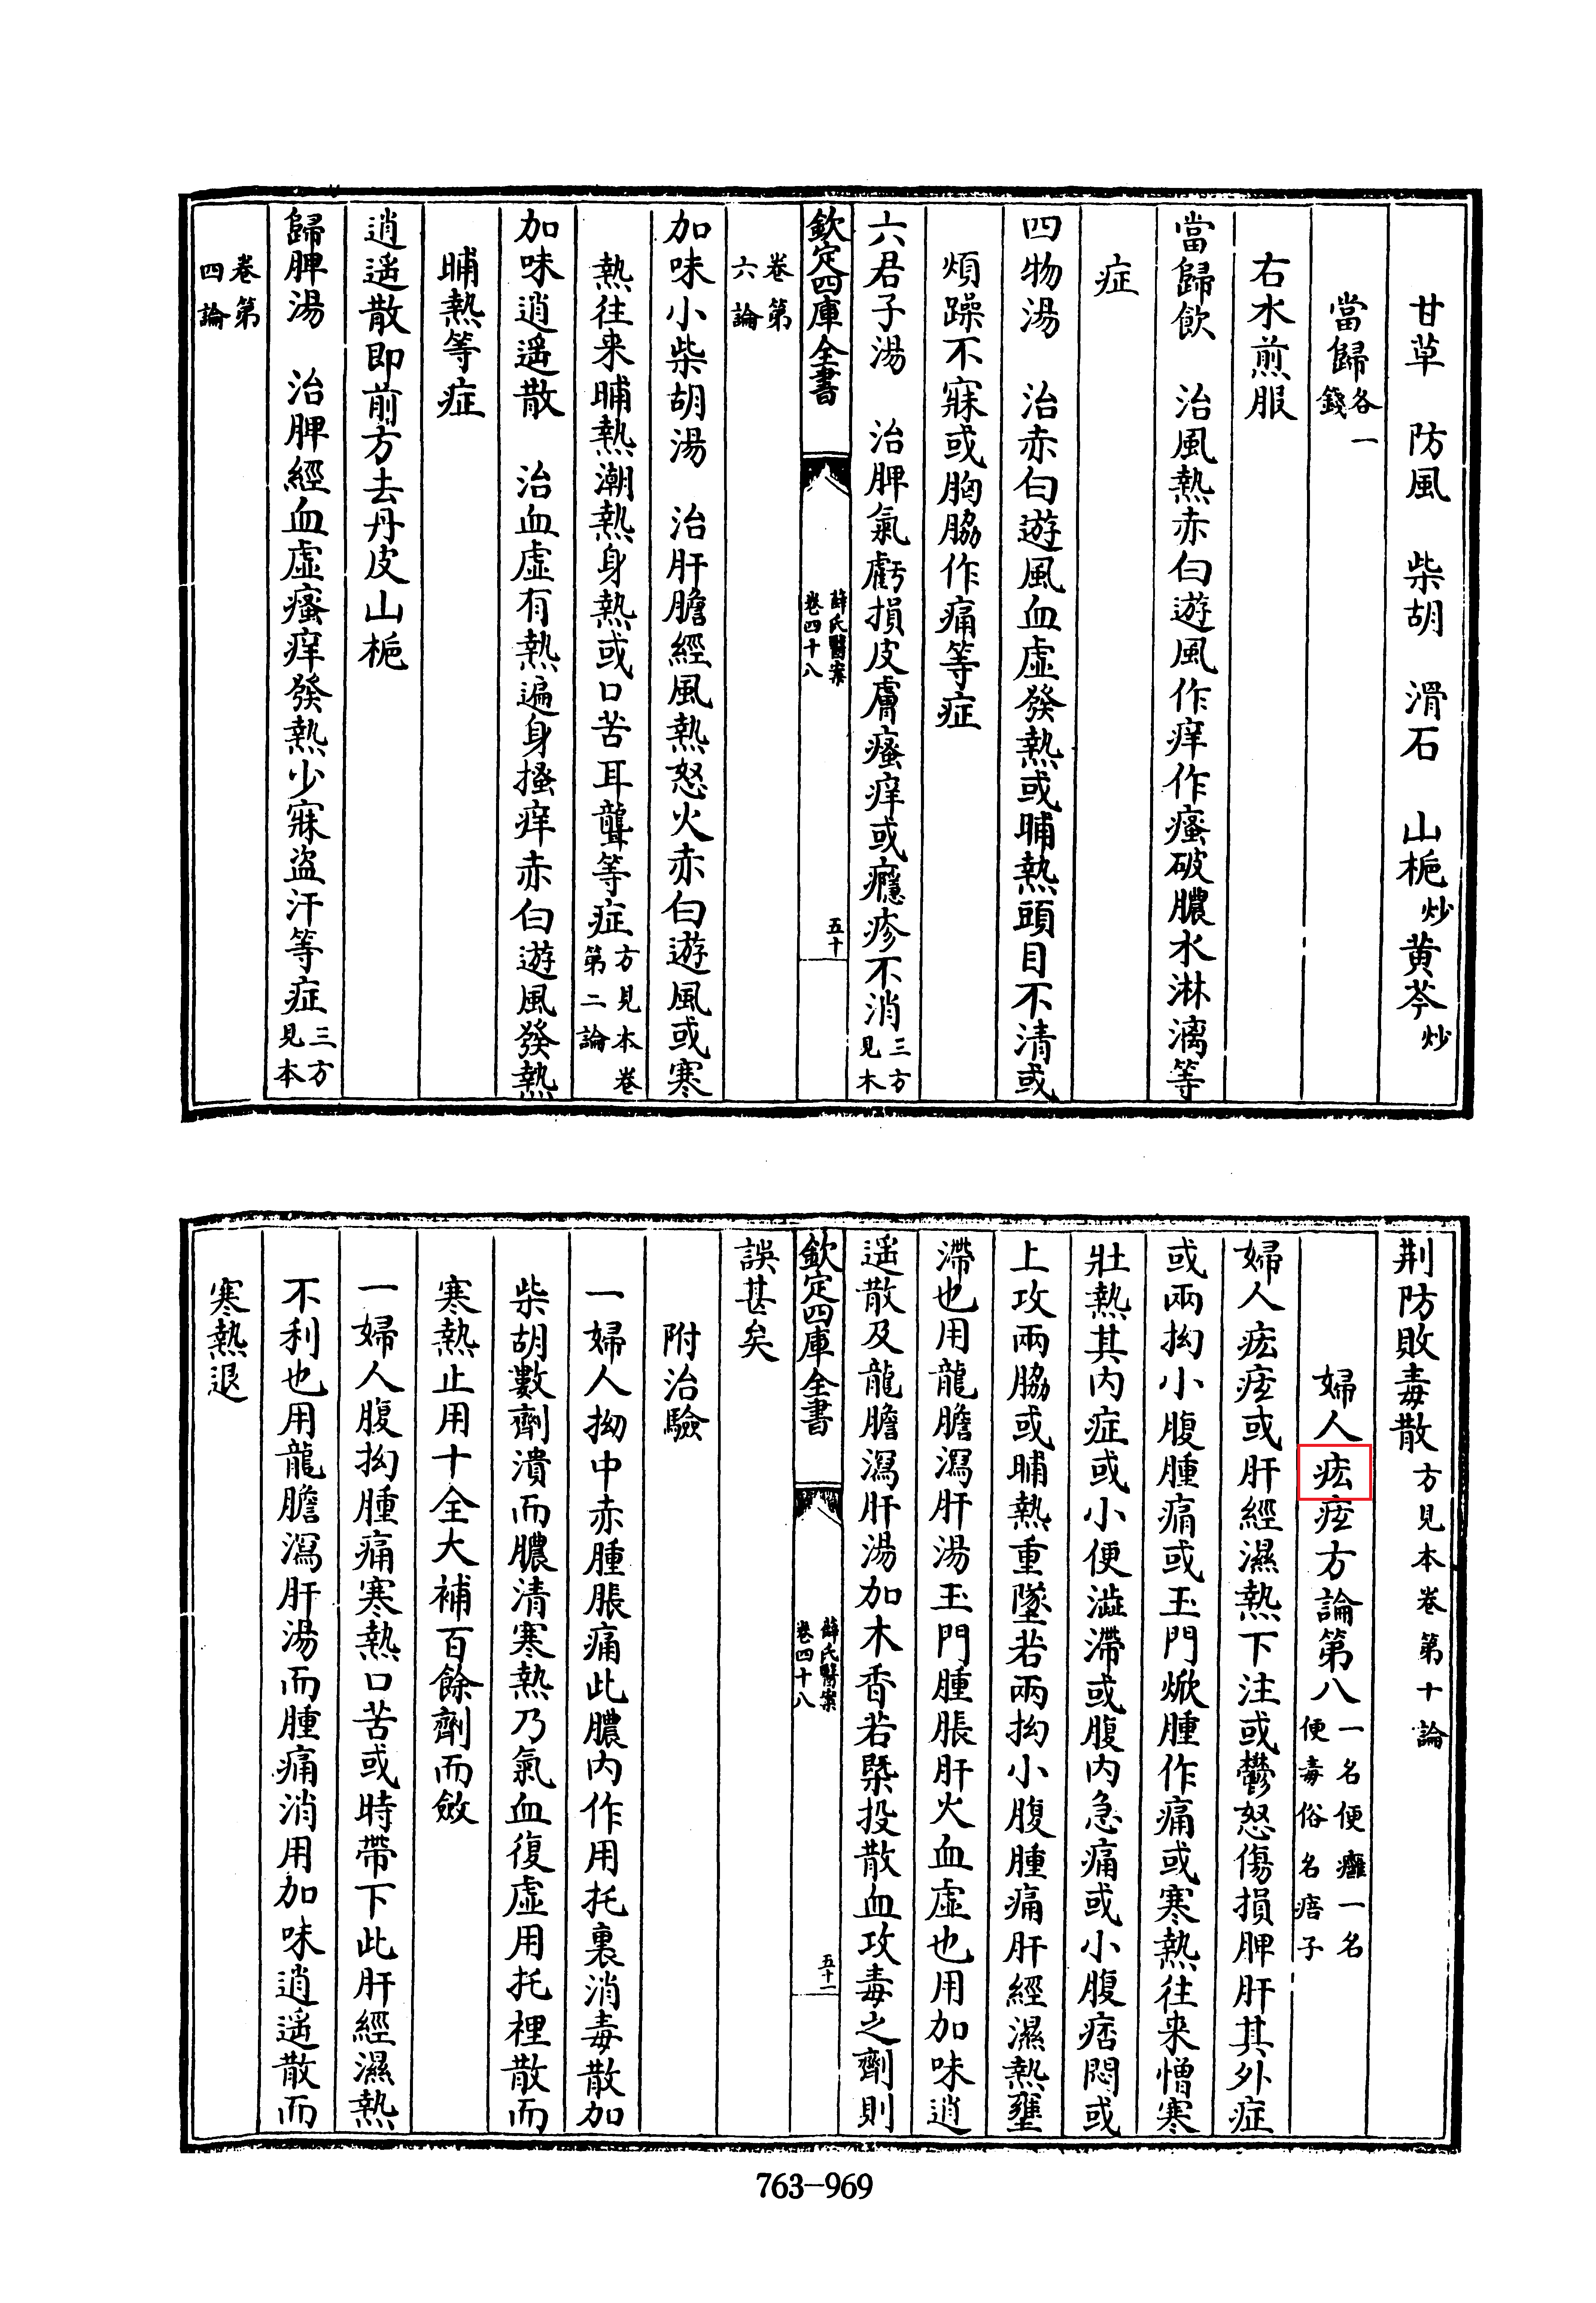 甘草　防風　柴胡　滑石　山梔炒黄芩炒
當歸各一錢
右水煎服
當歸飲　治風熱赤白遊風作痒作瘙破膿水淋漓等
症
四物湯　治赤白遊風血虛發熱或晡熱頭目不清或
煩躁不寐或胸脇作痛等症
六君子湯　治脾氣虧損皮膚瘙痒或癮疹不消三方見本
欽定四庫全書
薛氏醫案
卷四十八
五十
卷第六論
加味小柴胡湯　治肝膽經風熱怒火赤白遊風或寒
熱往来晡熱潮熱身熱或口苦耳聾等症方見本卷第二論
加味逍遥散　治血虛有熱遍身搔痒赤白遊風發熱
晡熱等症
逍遥散即前方去丹皮山梔
歸脾湯　治脾經血虛瘙痒發熱少寐盗汗等症三方見本
卷第四論
荆防敗毒散方見本卷第十論
婦人方論第八一名便癰一名便毒俗名子
婦人或肝經濕熱下注或鬱怒傷損脾肝其外症
或兩拗小腹腫痛或玉門焮腫作痛或寒熱往来憎寒
壯熱其内症或小便澁滯或腹内急痛或小腹痞悶或
上攻兩脇或晡熱重墜若兩拗小腹腫痛肝經濕熱壅
滯也用龍膽瀉肝湯玉門腫脹肝火血虛也用加味逍
遥散及龍膽瀉肝湯加木香若槩投散血攻毒之劑則
誤甚矣
欽定四庫全書
薛氏醫案
卷四十八
五十一
附治驗
一婦人拗中赤腫脹痛此膿内作用托裏消毒散加
柴胡數劑潰而膿清寒熱乃氣血復虛用托裡散而
寒熱止用十全大補百餘劑而斂
一婦人腹拗腫痛寒熱口苦或時帶下此肝經濕熱
不利也用龍膽瀉肝湯而腫痛消用加味逍遥散而
寒熱退
763—969